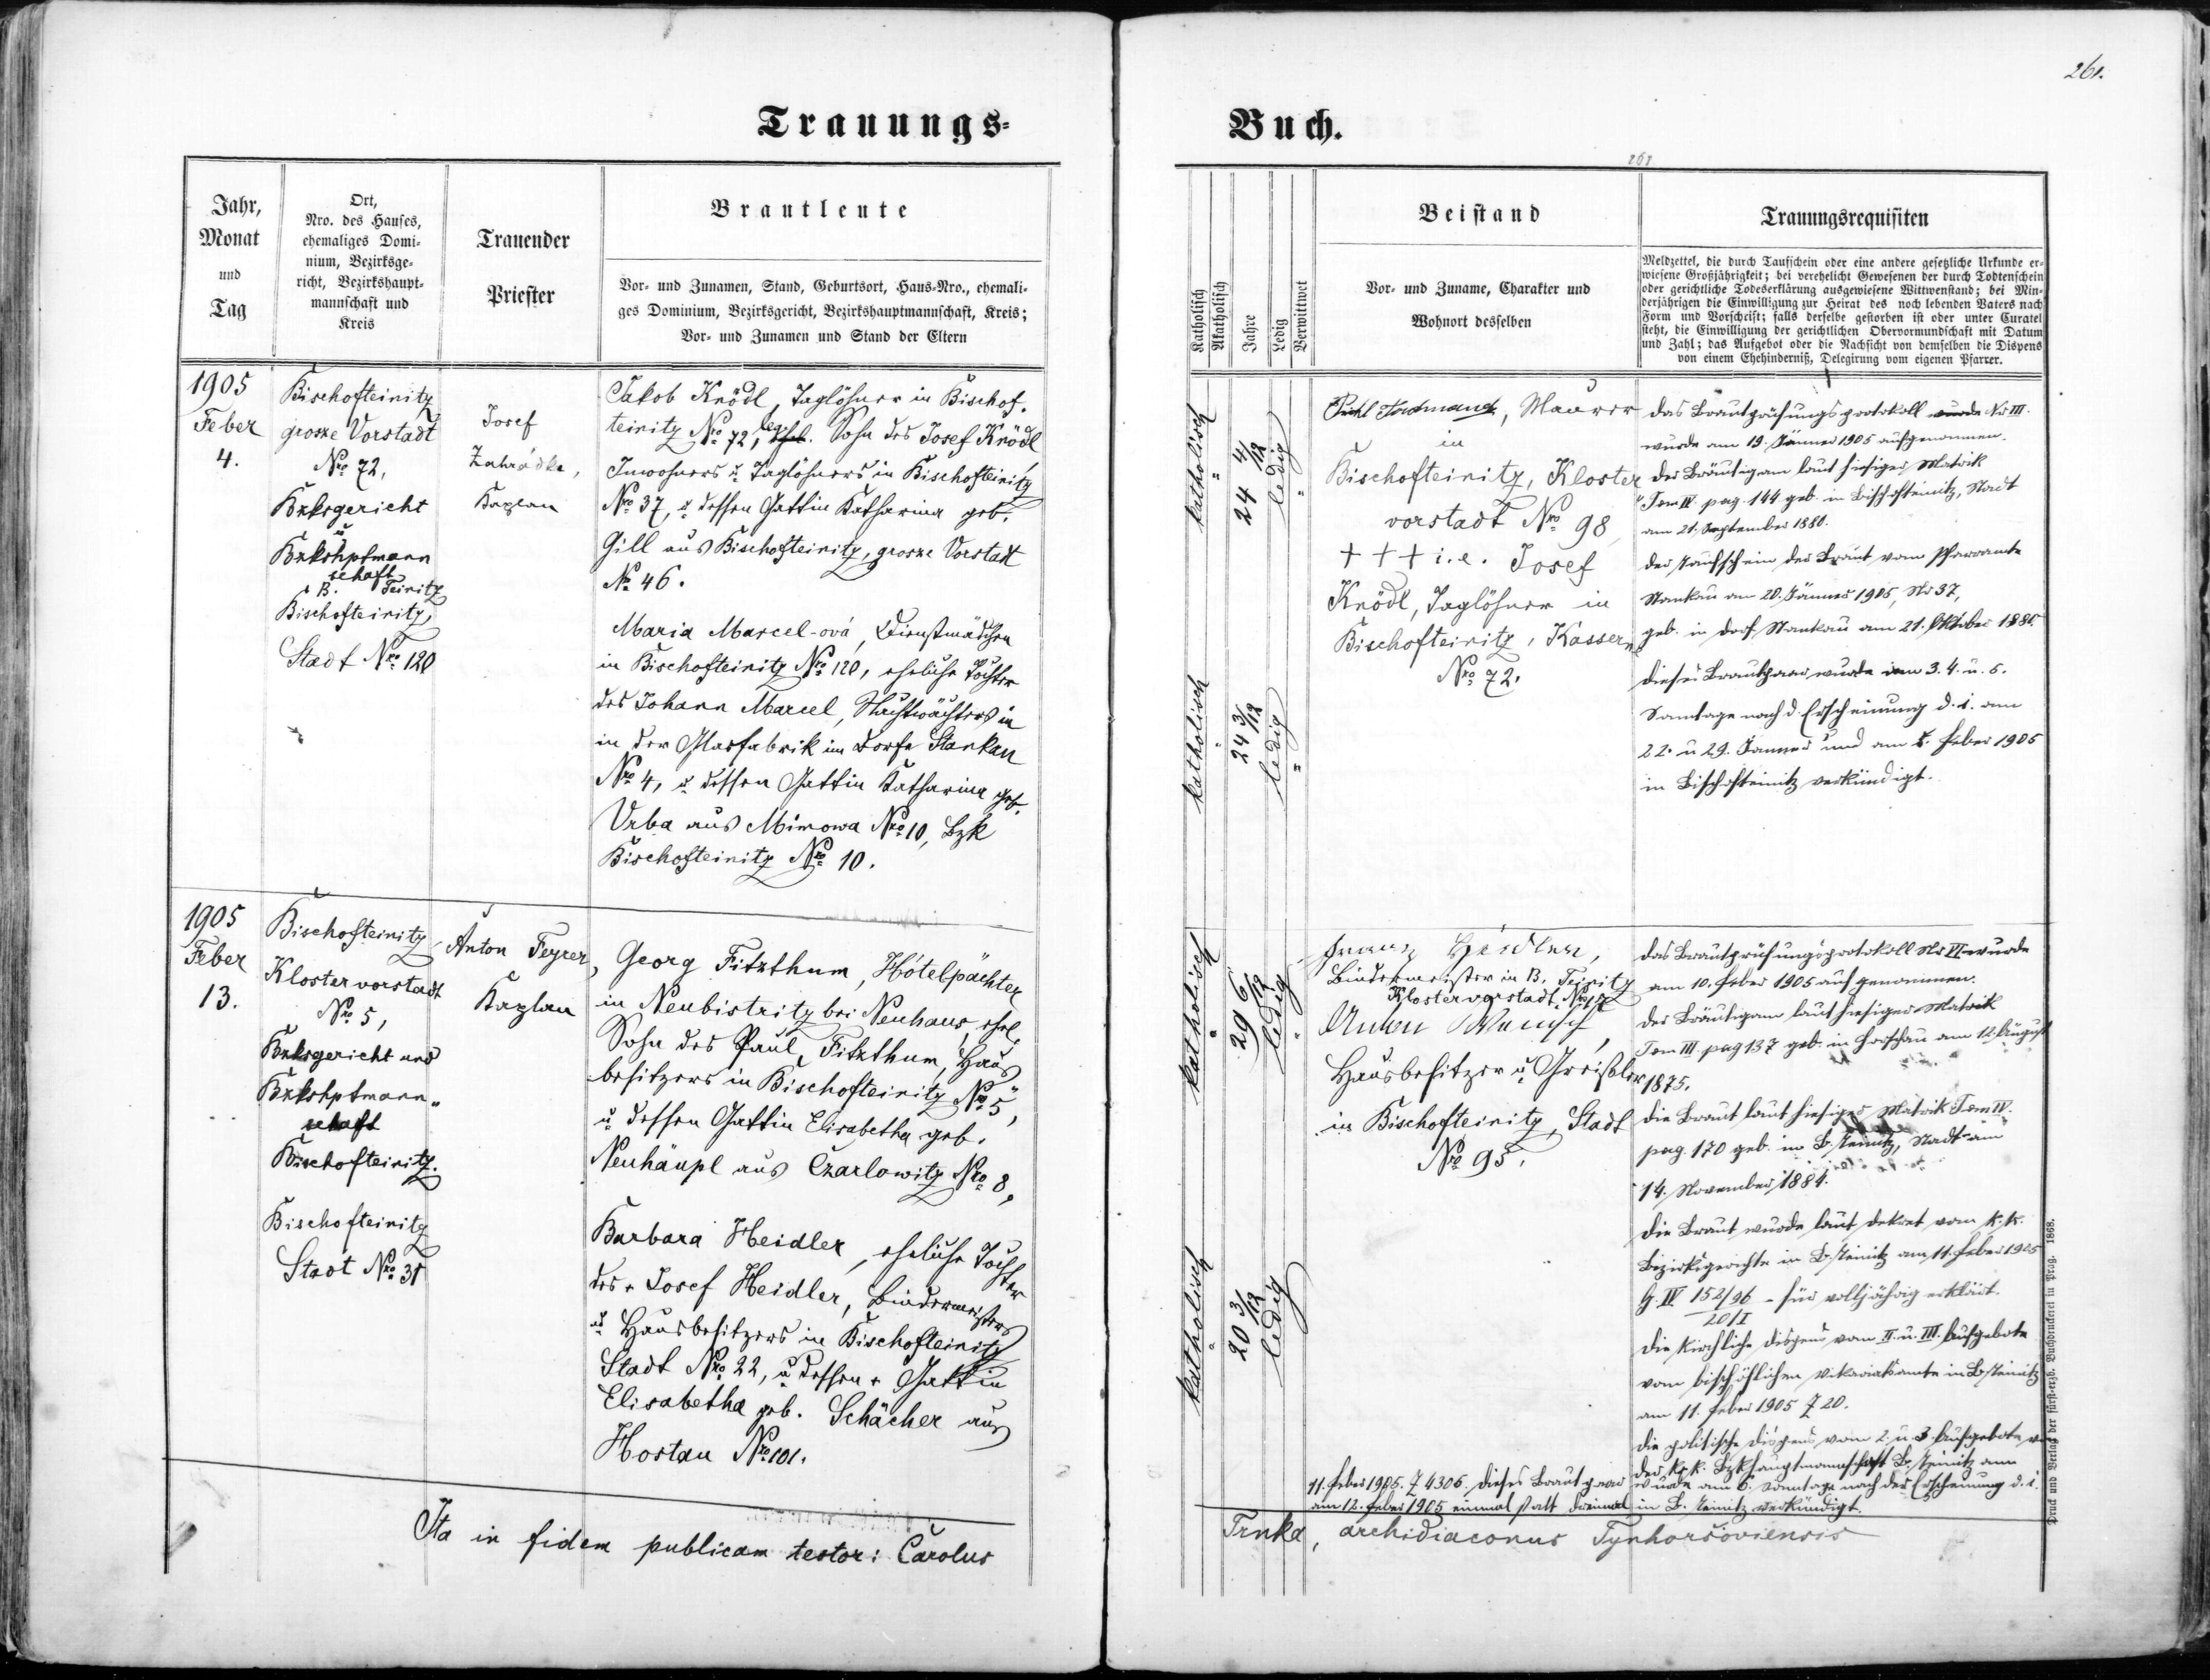 261.
Trauungs=
Buch.
261
Jahr,
Monat
und
Tag
Ort,
Nro. des Hauses,
ehemaliges Domi-
nium, Bezirksge-
richt, Bezirkshaupt-
mannschaft und
Kreis
Trauender
Priester
Brautleute
Vor- und Zunamen, Stand, Geburtsort, Haus-Nro., ehemali-
ges Dominium, Bezirksgericht, Bezirkshauptmannschaft, Kreis;
Vor- und Zunamen und Stand der Eltern
Katholisch
Akatholisch
Jahre
Ledig
Verwittwet
Beistand
Vor- und Zuname, Charakter und
Wohnort desselben
Trauungsrequisiten
Meldzettel, die durch Taufschein oder eine andere gesetzliche Urkunde er-
wiesene Großjährigkeit; bei verehelicht Gewesenen der durch Todtenschein
oder gerichtliche Todeserklärung ausgewiesene Wittwenstand; bei Min-
derjährigen die Einwilligung zur Heirat des noch lebenden Vaters nach
Form und Vorschrift; falls derselbe gestorben ist oder unter Curatel
steht, die Einwilligung der gerichtlichen Obervormundschaft mit Datum
und Zahl; das Aufgebot oder die Nachsicht von demselben die Dispens
von einem Ehehinderniß, Delegirung vom eigenen Pfarrer.
1905
Feber
4.
Bischofteinitz
grosze Vorstadt
Nro 72,
Bzksgericht
u
Bzkshptmann
schaft
B. Teinitz
Bischofteinitz,
Stadt Nro 120
Josef
Zahrádka,
Kaplan
Jakob Knödl, Taglöhner in Bischof-
teinitz Nro 72, Sohn des Josef Knödl
Inwohners u Taglöhners in Bischofteinitz
Nro 37, u dessen Gattin Katharina geb.
Gill aus Bischofteinitz, grosze Vorstadt
No 46.
Maria Marcel-ová, Dienstmädchen
in Bischofteinitz Nro 120, eheliche Tochter
des Johann Marcel, Nachtwächters in
in der Glasfabrik im Dorfe Stankau
Nro 4, u dessen Gattin Katharina geb.
Vrba aus Mirowa Nro 10, Bzk
Bischofteinitz Nro 10.
katholisch
"
24 4/12
ledig
"
katholisch
"
24 3/12
ledig
"
Ferdinand, Maurer
in
Bischofteinitz, Kloster
vorstadt Nro 98,
+ + + i.e. Josef
Knödl, Taglöhner in
Bischofteinitz, Kassern
Nro 72.
Das Brautprüfungsprotokoll wurde Nr III.
wurde am 19. Jänner 1905 aufgenommen.
Der Bräutigam laut hiesiger Matrik
Tom IV. pag. 144 geb. in Bischofteinitz, Stadt
am 21. September 1880.
Der Taufschein der Braut vom Pfarramte
Stankau am 20. Jänner 1905, Nr 37,
geb. in Dorf Stankau am 21. Oktober 1880.
Dieses Brautpaar wurde am 3. 4. u. 5.
Sonntage nach d. Erscheinung d. i. am
22. u 29. Jänner und am 5. Feber 1905
in Bischofteinitz verkündigt.
1905
Feber
13.
Bischofteinitz,
Klostervorstadt
Nro 5,
Bzksgericht und
Bzkshptmann-
schaft
Bischofteinitz.
Bischofteinitz
Stadt Nro 31
Anton Feyrer,
Kaplan
Georg Fitzthum, Hôtelpächter
in Neubistritz bei Neuhaus, ehel.
Sohn des Paul Fitzthum, Haus-
besitzers in Bischofteinitz Nro 5,
u dessen Gattin Elisabetha geb.
Neuhäupl aus Czarlowitz Nro 8,
Barbara Heidler, eheliche Tochter
des + Josef Heidler, Bindermeisters
u Hausbesitzers in Bischofteinitz
Stadt Nro 22, u dessen + Gattin
Elisabetha geb. Schächer aus
Hostau Nro 101.
katholisch
"
29 6/12
ledig
"
katholisch
"
20 3/12
ledig
Franz Heidler,
Bindermeister in B. Teinitz
Klostervorstadt Nro
Anton
Hausbesitzer u Greißler
in Bischofteinitz, Stadt
No 95.
Das Brautprüfungsprotokoll Nr VI wurde
am 10. Feber 1905 aufgenommen.
Der Bräutigam laut hiesiger Matrik
Tom III. pag 137 geb. in Horschau am 12. August
1875.
Die Braut laut hiesiger Matrik Tom IV.
pag. 170 geb. in B. Teinitz, Stadt am
14. November 1884.
Die Braut wurde laut Dekret vom k. k.
Bezirksgerichte in B. Teinitz am 11. Feber 1905
G. IV 152/96 - für volljährig erklärt.
20/I
Die kirchliche Dispens vom II. u. III. Aufgebote
vom bischöflichen Vikariatsamte in B. Teinitz
am 11. Feber 1905 Z 20.
Die politische Dispens vom 2. u. 3. Aufgebote von
der k. k. Bzkhauptmannschaft B. Teinitz am
11. Feber 1905. Z 4306. Dieses Brautpaar wurde am 6. Sonntage nach der Erscheinung d. i.
am 12. Feber 1905 einmal statt dreimal in B. Teinitz verkündigt.
Ita in fidem publicam testor: Carolus
Trnka, archidiaconus Tynhoršoviensis
Druck und Verlag der fürst-erzb. Buchdruckerei in Prag. 1868.